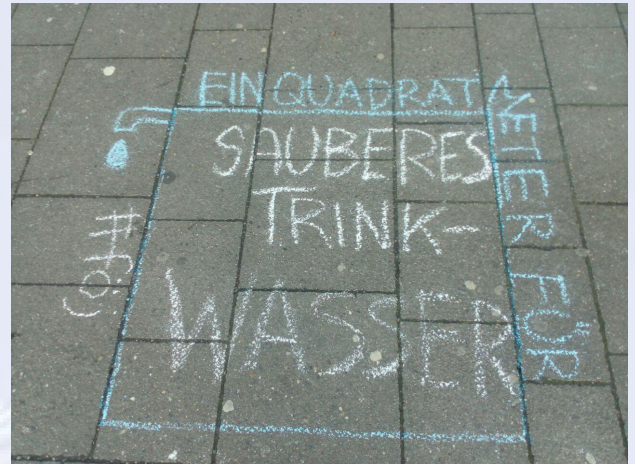 EIN QUADRAT
METER FÜR
SAUBERES
TRINK-
WASSER